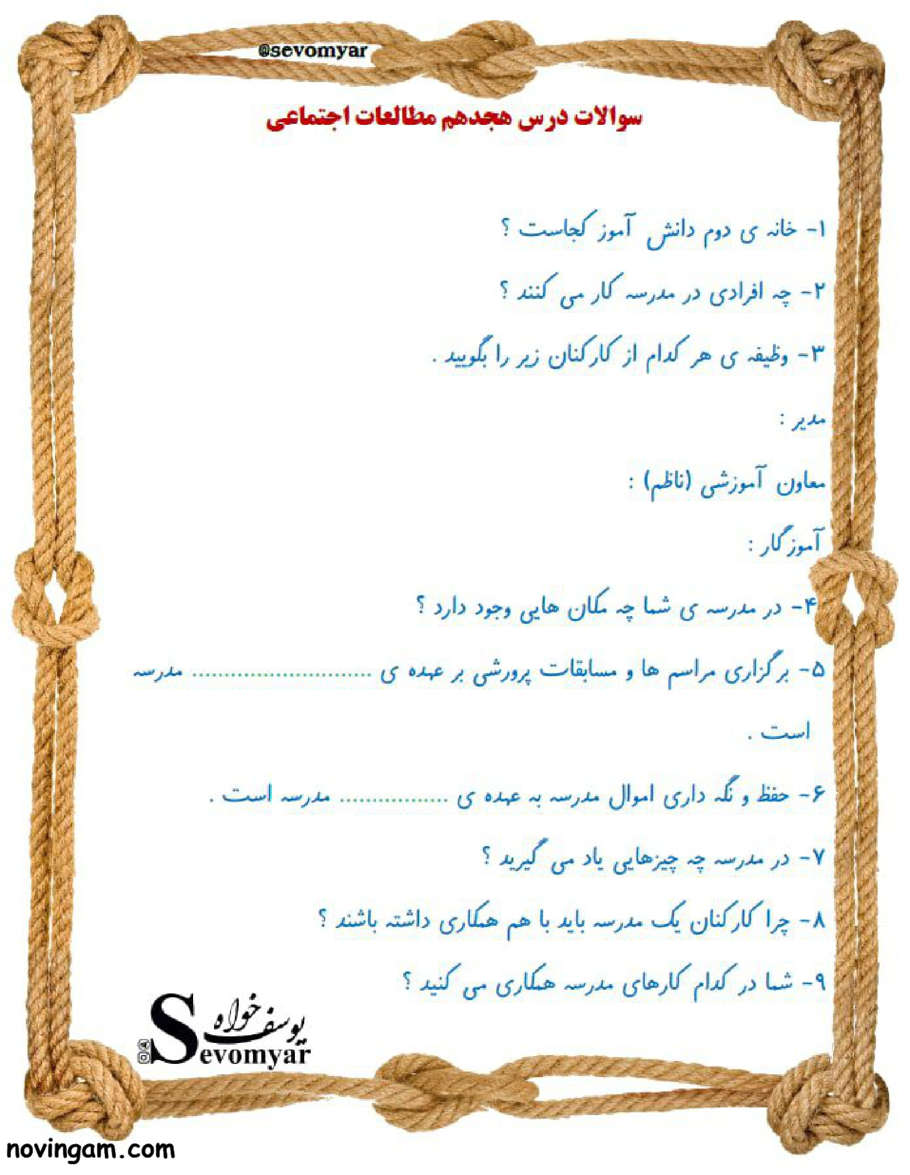 @sevomyar
سوالات درس هجدهم مطالعات اجتماعی
۱- خانه ی دوم دانش آموز کجاست ؟
۲- چه افرادی در مدرسه کار می کنند ؟
۳- وظیفه ی هر کدام از کارکنان زیر را بگویید .
مدیر :
معاون آموزشی (ناظم) :
آموزگار :
۴- در مدرسه ی شما چه مکان هایی وجود دارد ؟
۵- برگزاری مراسم ها و مسابقات پرورشی بر عهده ی ............................ مدرسه
است .
۶- حفظ و نگه داری اموال مدرسه به عهده ی ................. مدرسه است .
۷- در مدرسه چه چیزهایی یاد می گیرید ؟
۸- چرا کارکنان یک مدرسه باید با هم همکاری داشته باشند ؟
۹- شما در کدام کارهای مدرسه همکاری می کنید ؟
یوسف خواه
Sevomyar
novingam.com